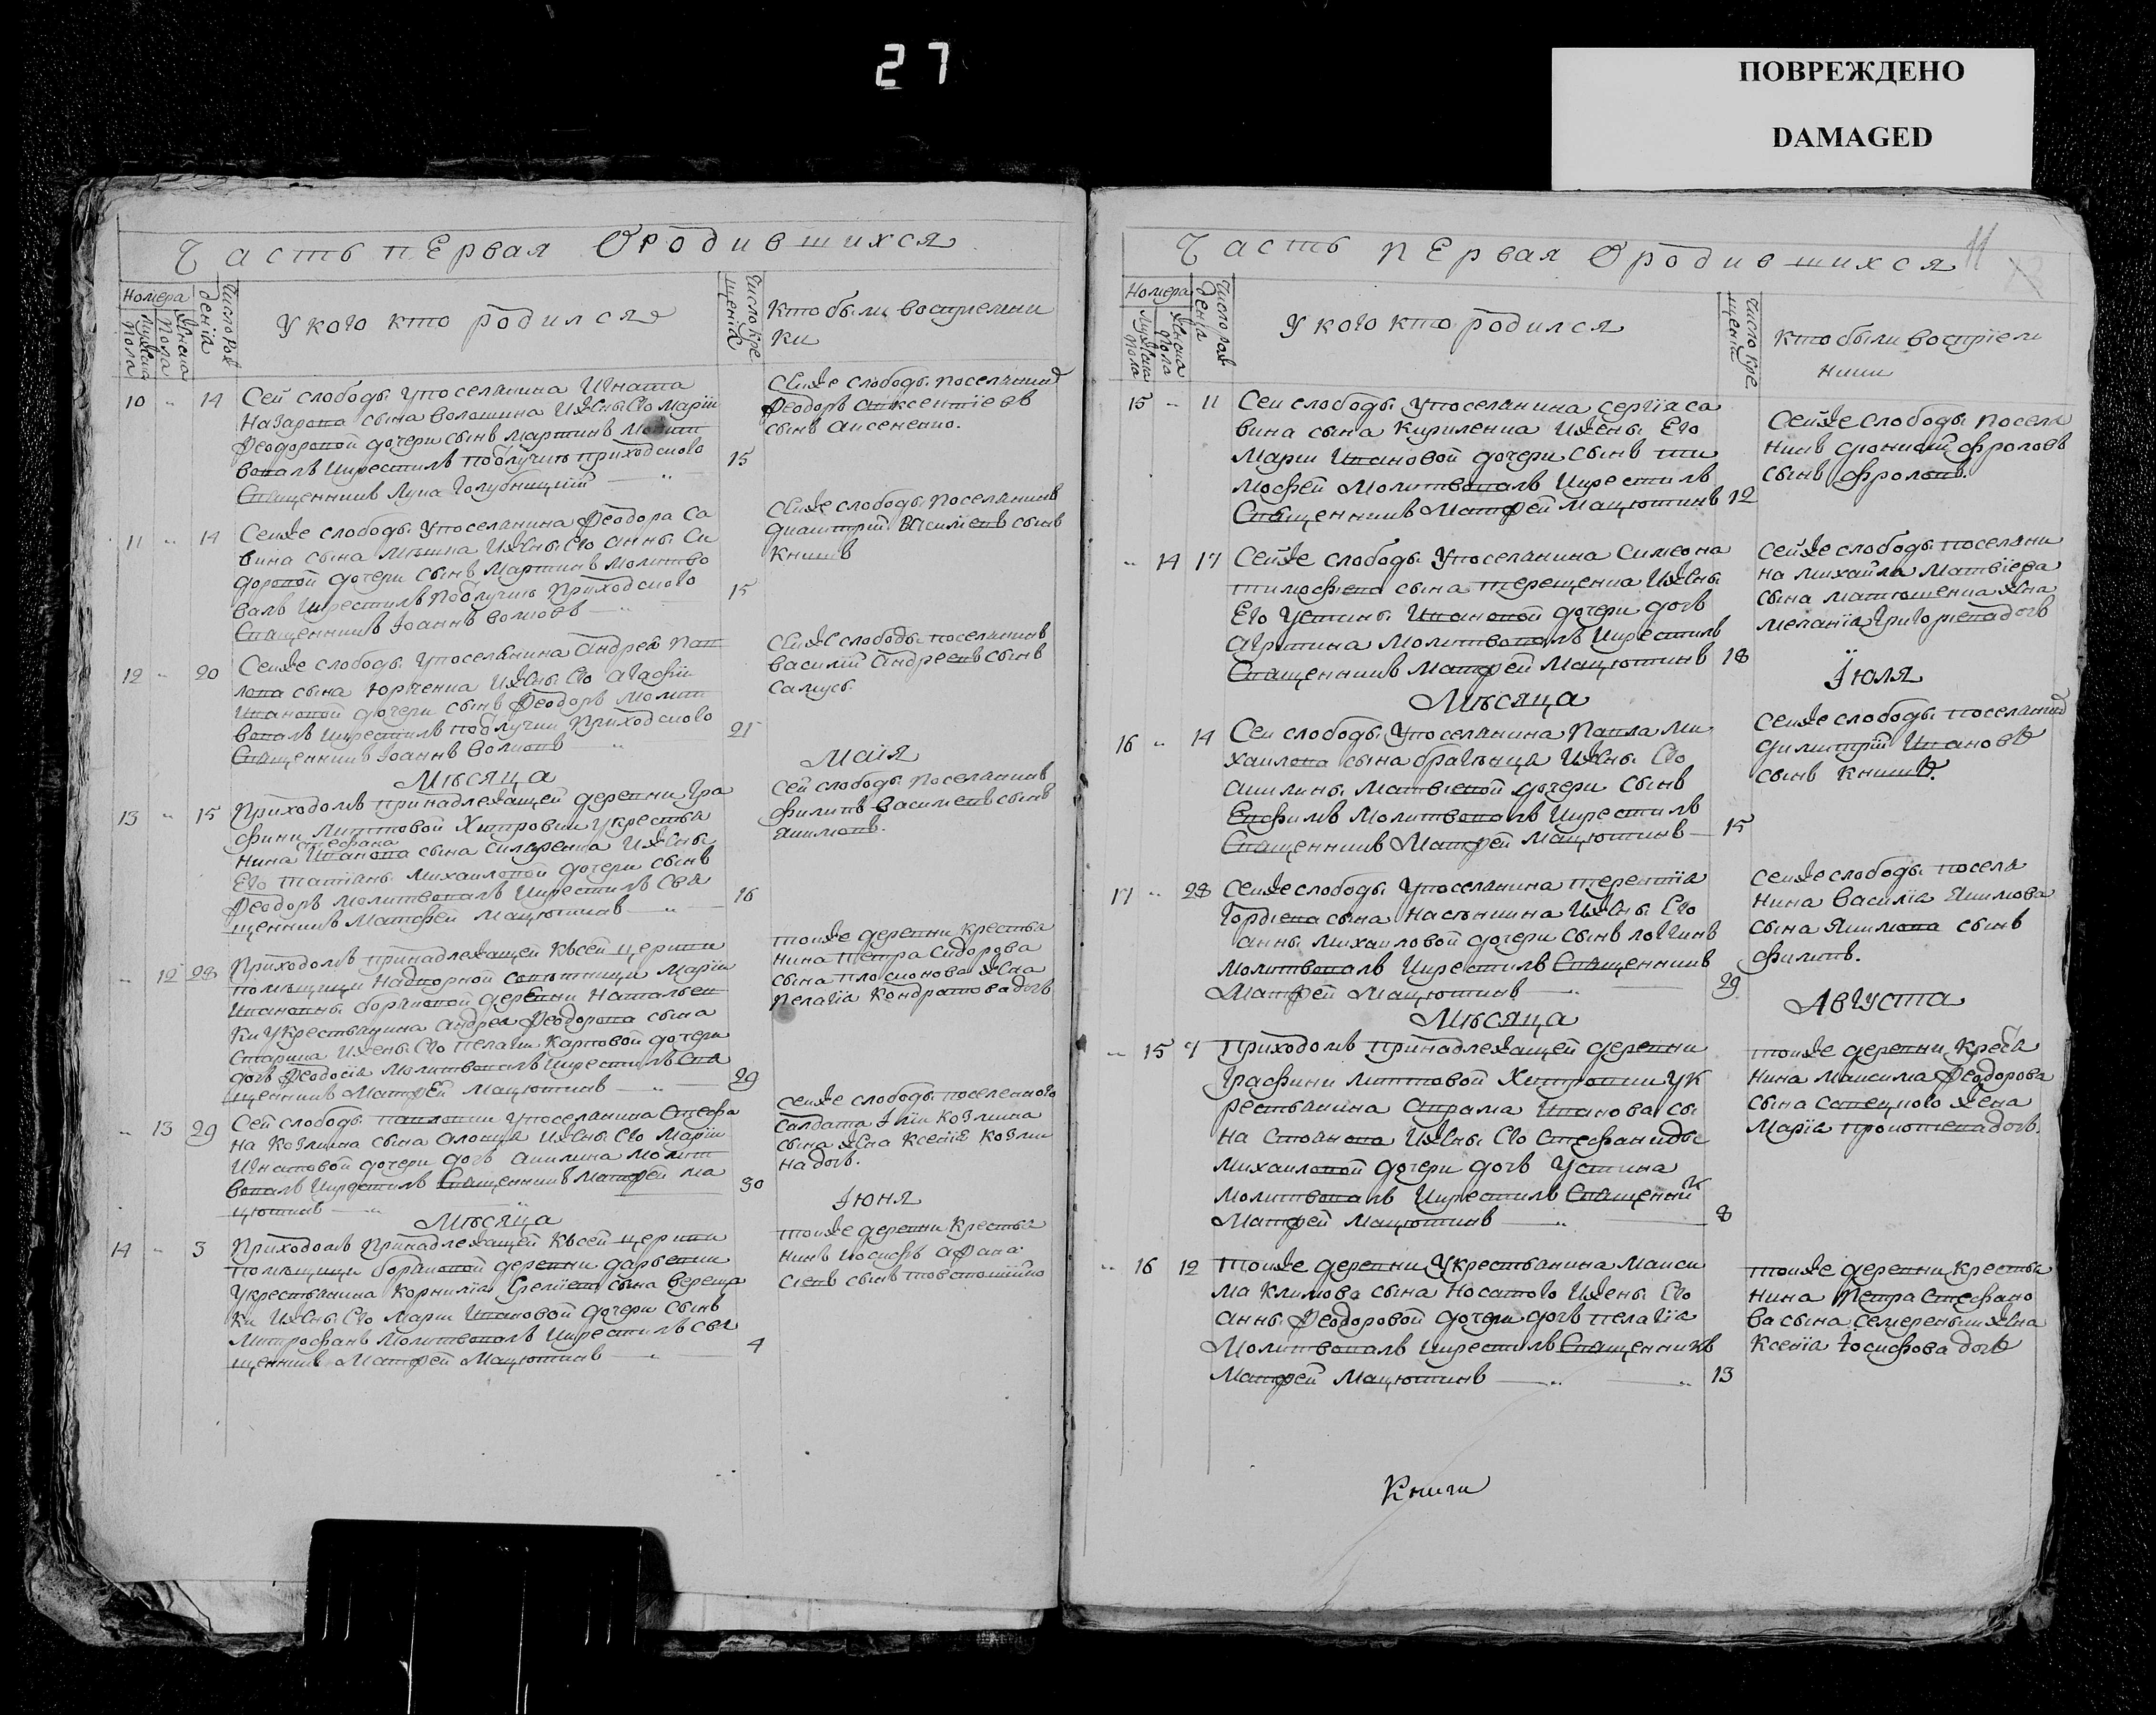 27
ПОВРЕЖДЕНО
DAMAGED
Часть первая Ородившихся
Номера
Мужеска Пола
Женска Пола
Число рож дения
У кого кто родился
Число кре щения
Кто были восприемни
ки
10 " 14 Сей слободы упоселянина Игната
Назарова сына волошина ижены его Марiи
Феодоровой дочери сынъ Мартинъ Молит
вовалъ икрестилъ поблучию приходского
Священникъ Лука Голубницкiй 15
Сейже слободы поселянинъ
Феодоръ Авксентiевъ
сынъ Аксененко.
11 " 14 Сейже слободы упоселянина Феодора Са
вина сына ижены его анны Си
доровой дочери сынъ Мартинъ Молитво
валъ икрестилъ поблучию Приходского 15
Священникъ Iоаннъ волковъ
Сейже слободы поселянинъ
Димитрiй Василiевъ сынъ
Книшъ
12 " 20 Сейже слободы упоселянина Андрея Пав
лова сына Юрченка ижены его Агафiи
Ивановой дочери сынъ Феодоръ Молит
вовалъ икрестилъ поблучии Приходского 21
Священникъ Iоаннъ волковъ
Сейже слободы поселянинъ
василiй Андреевъ сынъ
Самусь
Мѣсяца Маiя
13 " 15 Приходомъ принадлежащей деревни Гра
фини Литтовой Хитровки укрестья
стефана
нина Иванова сына ижены
Его татiаны Михаиловой дочери сынъ
Феодоръ молитвовалъ икрестилъ Свя 16
щенникъ Матфей Мацютинъ
Сей слободы Поселянинъ
филипъ василiевъ сынъ
Якимовъ.
" 12 28 Приходомъ принадлежащей Ксей церкви
помѣщици Надворной Совѣтници Марiи
Ивановны деревни Натальев
ки укрестьянина Андрея Феодорова сына
Старика ижены его пелагiи Карповой дочери
дочь Феодосiя Молитвовалъ икрестилъ Свя
щенникъ Матфей Мацютинъ 29
тойже деревни крестья
нина Петра Сидорова
сына жена
Пелагiя Кондратова дочь
" 13 29 Сей слободы павловки упоселянина Стефа
на Козмина сына ижены его Марiи
Игнатовой дочери дочь Акилина молит
вовалъ икрестилъ Священникъ Матфей Ма 30
цютинъ
Сейже слободы поселенного
Салдата Iлiи Козмина
сына жена Ксенiя Козми
на дочь.
Мѣсяца Iюня
14 " 3 Приходомъ Принадлежащей Ксей церкви
помѣщици деревни дарьевки
укрестьянина Корнилiя сына вереща
ки ижены его Марiи Ивановой дочери сынъ
Митрофанъ Молитвовалъ икрестилъ свя
щенникъ Матфей Мацютинъ 4
тойже деревни Крестья
нинъ Iосифъ Афана
сiевъ сынъ
Часть первая Ородившихся
11
Номера
Мужеска Пола
Женска Пола
Число рож дения
У кого кто родился
Число кре щения
Кто были восприем
ники
15 " 11 Сей слободы упоселянина Сергiя са
вина сына Кириленка ижены Его
Марiи Ивановой дочери сынъ ти
мофей Молитвовалъ икрестилъ
Священникъ Матфей Мацютинъ 12
Сейже Слободы поселя
нинъ фроловъ
сынъ фроловъ.
" 14 17 Сейже слободы упоселянина Симеона
тимофева сына терещенка ижены
Его Устины Ивановой дочери дочь
Агрипина Молитвовалъ икрестилъ
Священникъ Матфей Мацютинъ 18
Сейже слободы поселяни
на Михайла Матвiева
сына Матюшенка жена
Меланiя Григориева дочь
Мѣсяца Iюля
16 " 14 Сей слободы упоселянина Павла Ми
хаилова сына ижены его
Акилины Матвiевой дочери сынъ
Евфимъ Молитвовалъ икрестилъ 15
Священникъ Матфей Мацютинъ
Сейже слободы поселянинъ
димитрiй Ивановъ
сынъ Книшъ.
17 " 28 Сейже слободы упоселянина терентiя
Гордiева сына ижены Его
анны Михаиловой дочери сынъ логинъ
Молитвовалъ икрестилъ Священникъ
Матфей Мацютинъ 29
Сейже слободы посела
нина василiя Якимова
сына Якимова сынъ
филипъ.
Мѣсяца Августа
" 15 7 Приходомъ Принадлежащей деревни
Графини литтовой Хитровки ук
рестьянина Абрама Иванова сы
на Стоянова ижены его Стефаниды
Михаиловой дочери дочь Устина
Молитвовалъ икрестилъ Священник
Матфей Мацютинъ 8
тойже деревни Крестя
нина Максима Феодорова
сына жена
Марiя дочь.
" 16 12 Тойже деревни Укрестьянина Макси
ма Климова сына Носатого ижены его
анны Феодоровой дочери дочь пелагiя
Молитвовалъ икрестилъ Священникъ
Матфей Мацютинъ 13
тойже деревни крестья
нина Петра Стефано
ва сына жена
Ксенiя Iосифова дочь
Книги